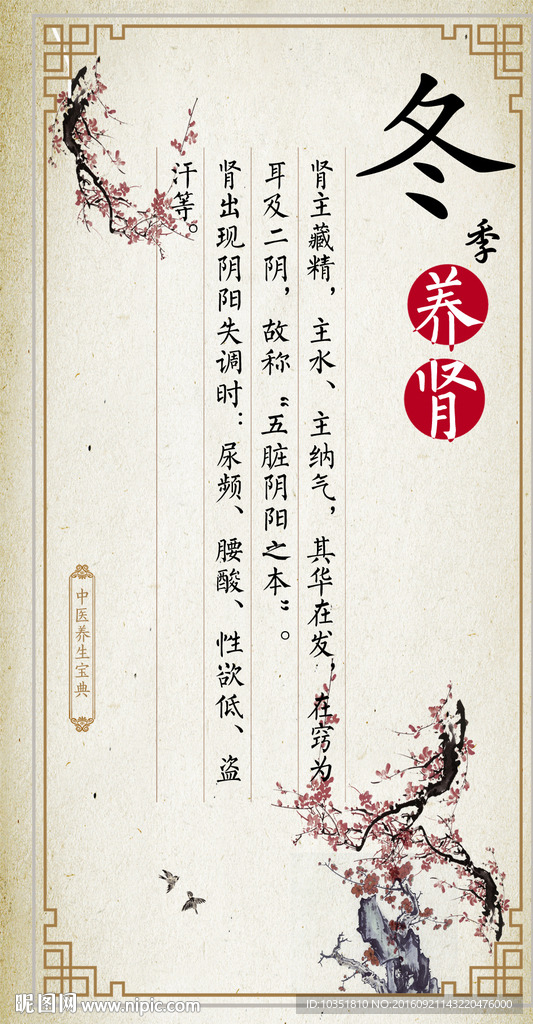 冬
季
养
肾
肾主藏精，主水、主纳气，其华在发，在窍为
耳及二阴，故称“五脏阴阳之本”。
肾出现阴阳失调时：尿频、腰酸、性欲低、盗
汗等。
中医养生宝典
昵图网 www.nipic.com
ID:10351810 NO:20160921143220476000